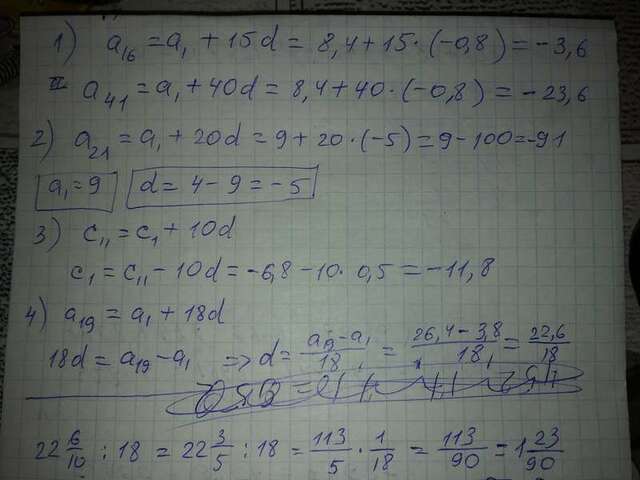 1) a₁₆ = a₁ + 15d = 8,4 + 15·(-0,8) = -3,6
a₄₁ = a₁ + 40d = 8,4 + 40·(-0,8) = -23,6
2) a₂₁ = a₁ + 20d = 9 + 20·(-5) = 9 - 100 = -91
a₁ = 9 d = 4 - 9 = -5
3) c₁₁ = c₁ + 10d
c₁ = c₁₁ - 10d = -6,8 - 10·0,5 = -11,8
4) a₁₉ = a₁ + 18d
18d = a₁₉ - a₁ => d = (a₁₉ - a₁)/18 = (26,4 - 3,8)/18 = 22,6/18
22 6/10 : 18 = 22 3/5 : 18 = 113/5 · 1/18 = 113/90 = 1 23/90